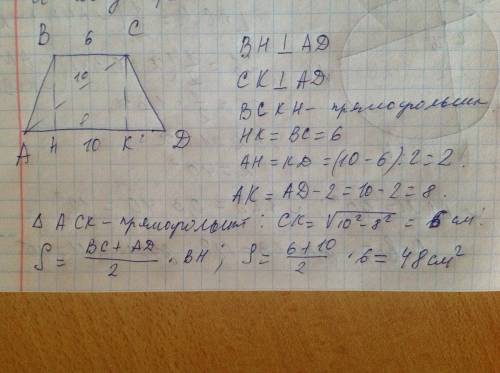 B 6 C
10
8
A H 10 K 2 D
BH ⊥ AD
CK ⊥ AD
BCKH - прямоугольник
HK = BC = 6
AH = KD = (10 - 6) : 2 = 2.
AK = AD - 2 = 10 - 2 = 8.
Δ ACK - прямоугольн : CK = √10² - 8² = 6 см.
S = BC + AD / 2 · BH ; S = 6 + 10 / 2 · 6 = 48 см²